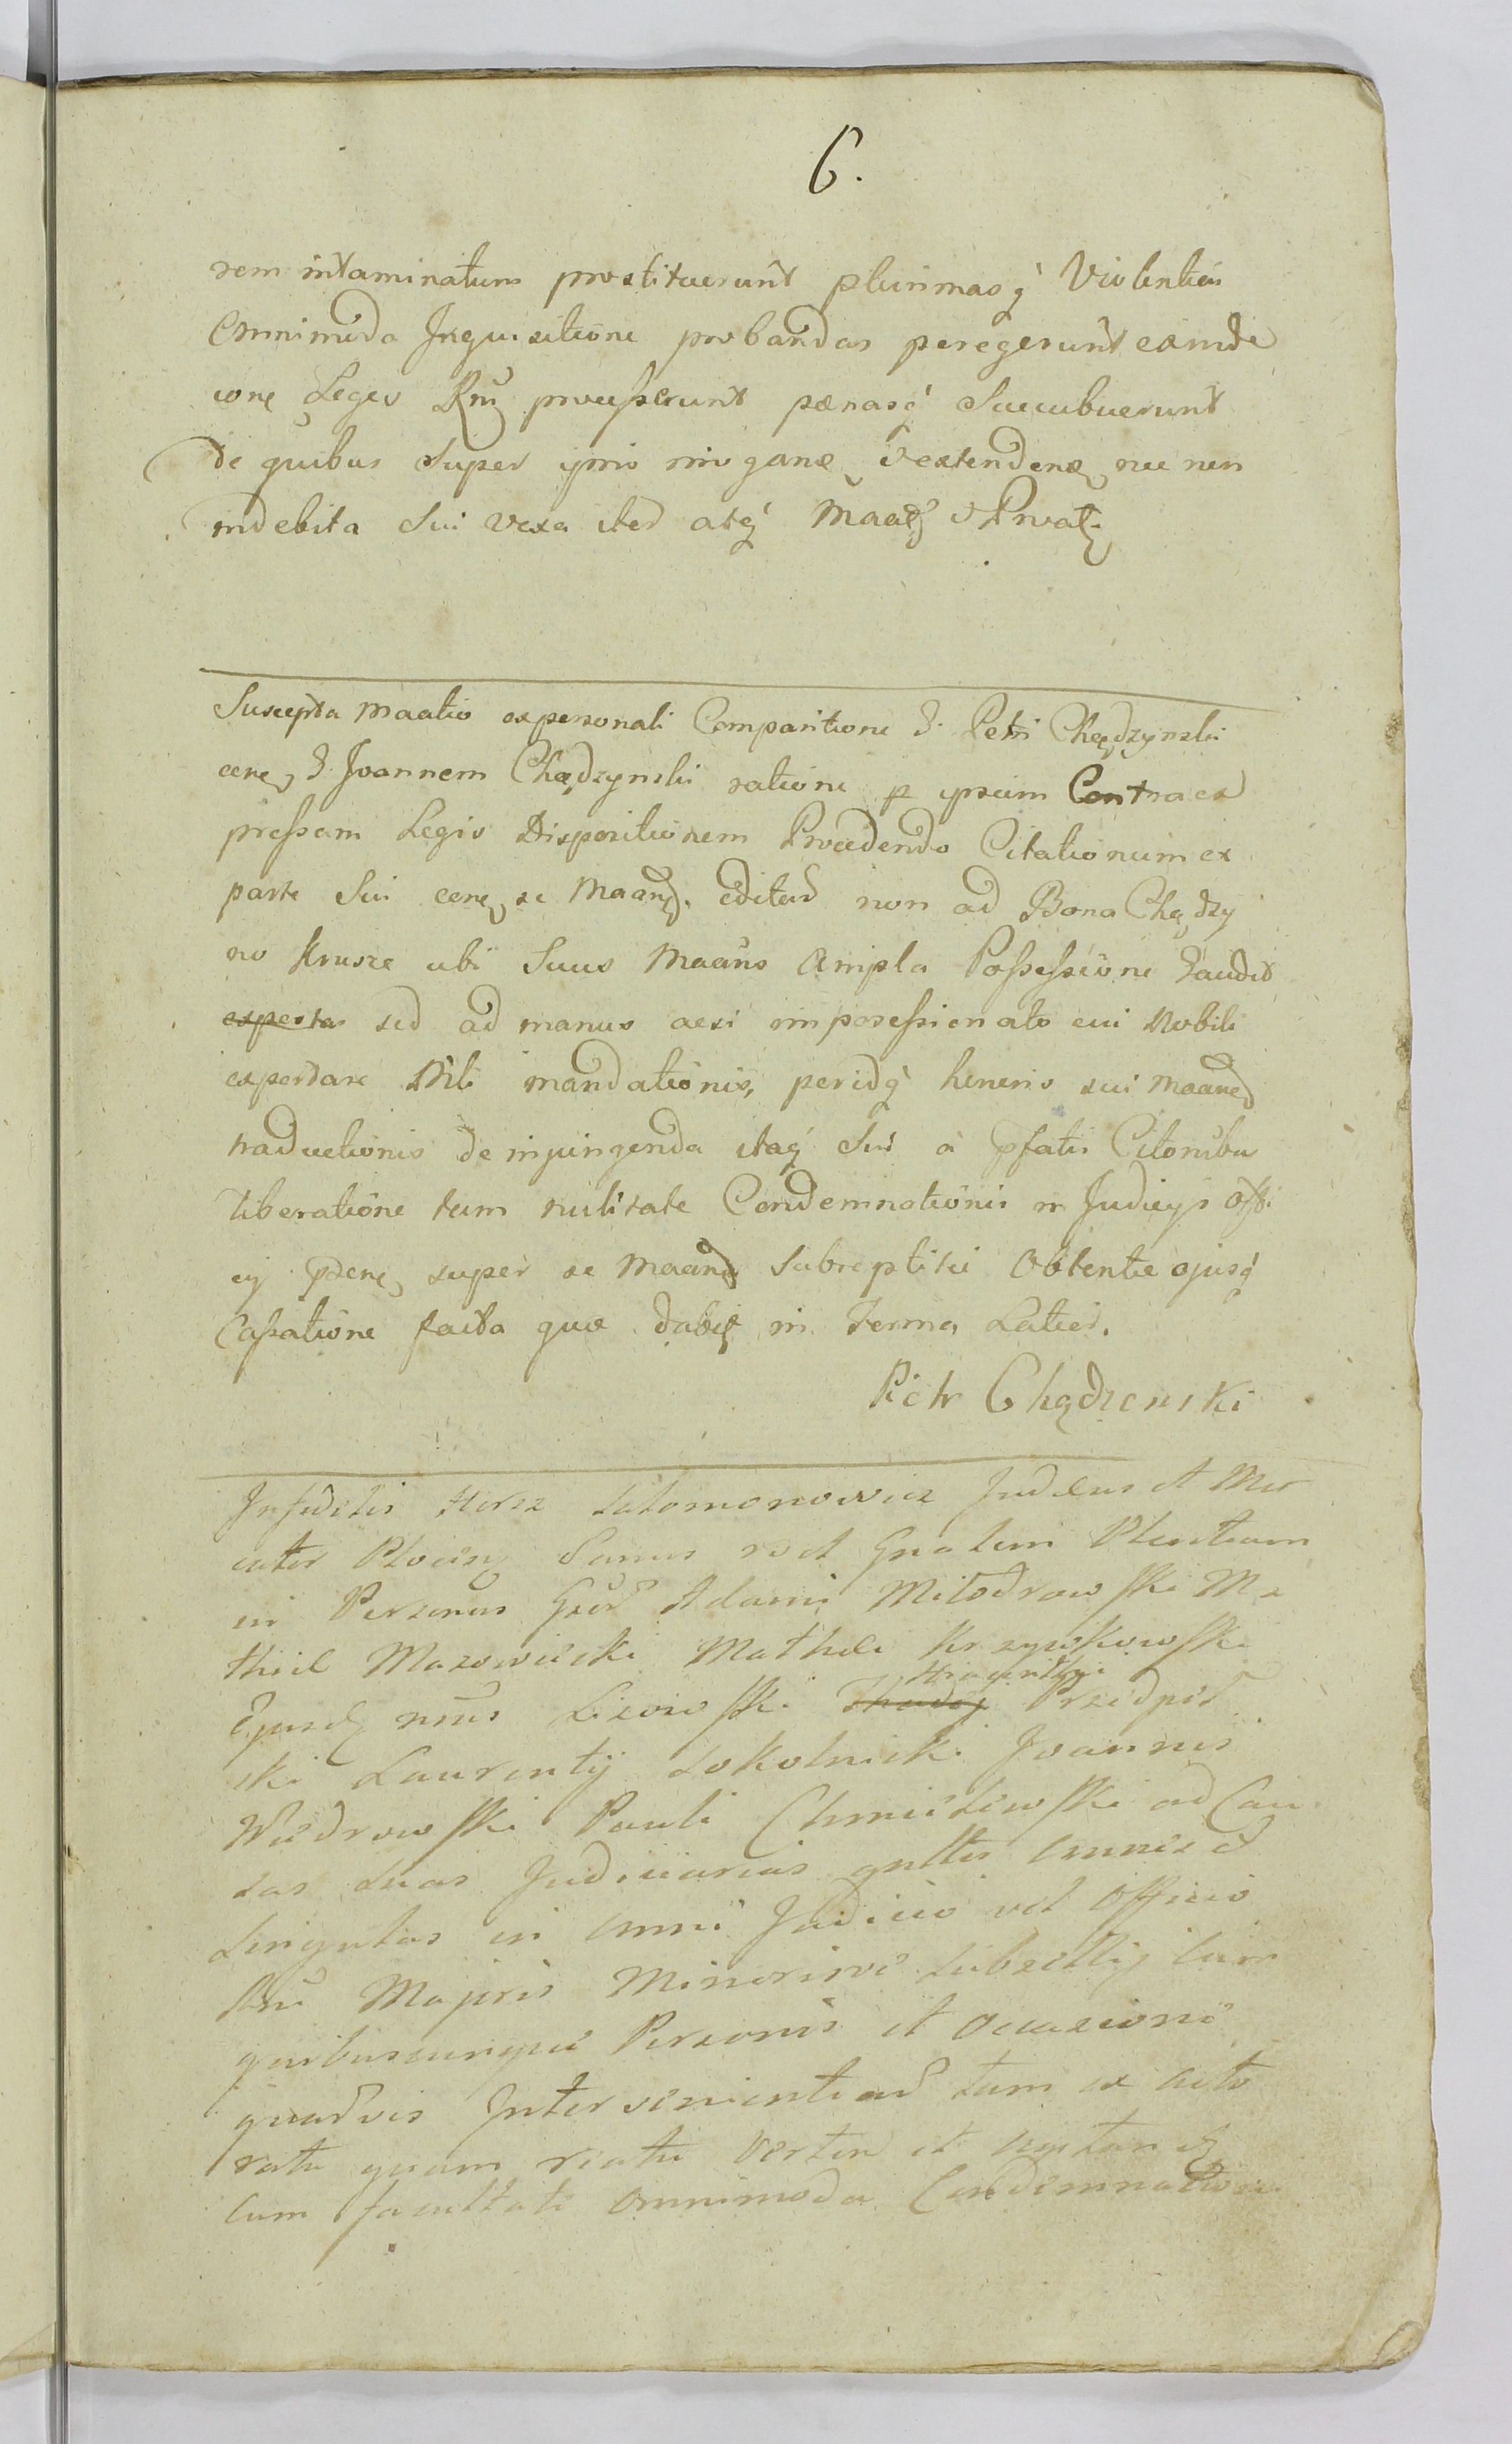 6.
rem intaminatum prostituerunt plurimasq Violentias
Omnimoda Inquisitione probandas peregerunt eamde
ione Leges Rni processerunt pœnasq Succubuerunt
de quibus Super ipsis et extendens nec non
indebita Sui vexa sted atq Maaõ et Privat
Suscepta Maatio ex personali Comparitione G. Petri Chądzynski
cene G. Joannem Chądzynski ratione p ipsum Contra ex
pressam Legis Dispositionem Procedendo Citationum ex
parte Sui cene se Maand. editar non ad Bona Chądzy
no Krusze ubi Suus Maans Ampla Possessione Gaudet
exporta sed ad manus acsi impossessionato cui Nobili
exportare mandationis, peridq hineris sui Maand
traductionis de injungenda itaq Sui à pfatis Citonibus
liberatione tum nulitate Condemnationis in Judicys Offi
cy super se Maand Subreptitie Obtente ejusq
Cassatione facta quæ in Termo Latius.
Piotr Chądzenski
Infidelis Hersz Salomonowicz Judæus et Mer
cator Plocens Sanus Gnalem Plentiam
in Personas Gnor Adami Miłodrowski Ma
thiæ Mazowiecki Mathæi Krzywkowski
Lisowski Hiacinthi Przedpeł
ski Laurentij Sokolnicki Joannis
Wiedrowski Pauli Chmielewski ad Cau
sas Suas Judiciarias qustis Omnes et
Singulas in Omni Judicio vel Officio
Rni Majoris Minorisve Subsellij cum
quibuscunque Personis et Occasione
quarvis Intervenientiar tam ex acto
ratu quam reatu verten et
Cum facultate Omnimoda Condemnation